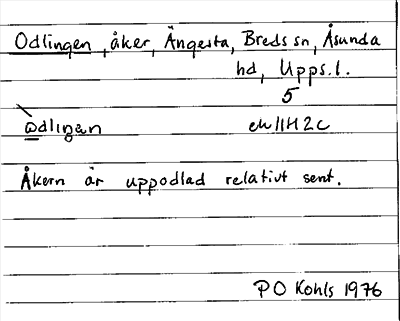 Odlingen, åker, Ängesta, Breds sn, Åsunda
hd, Upps.l.
5
odlingen
ek 11H2c
Åkern är uppodlad relativt sent.
PO Kohls 1976